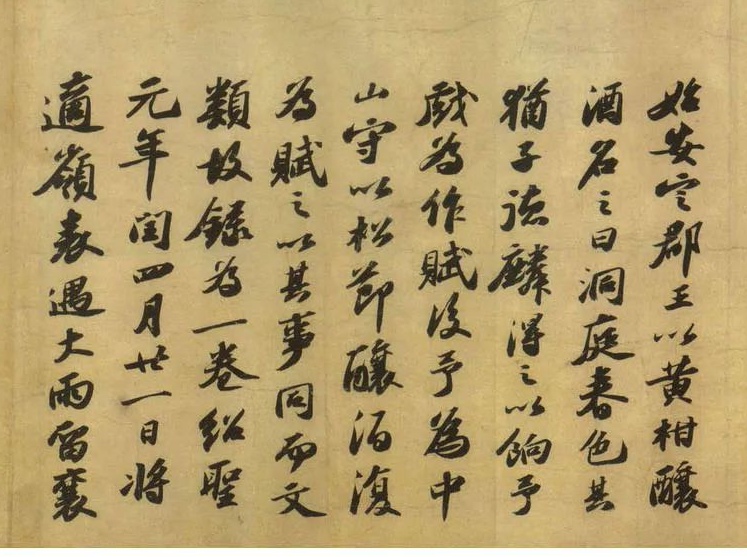 始安定郡王以黄柑釀
酒名之曰洞庭春色其
猶子德麟得之以餉予
戲為作賦後予為中
山守以松節釀酒復
為賦之以其事同而文
類故録為一卷紹聖
元年閏四月廿一日將
適嶺表遇大雨留襄